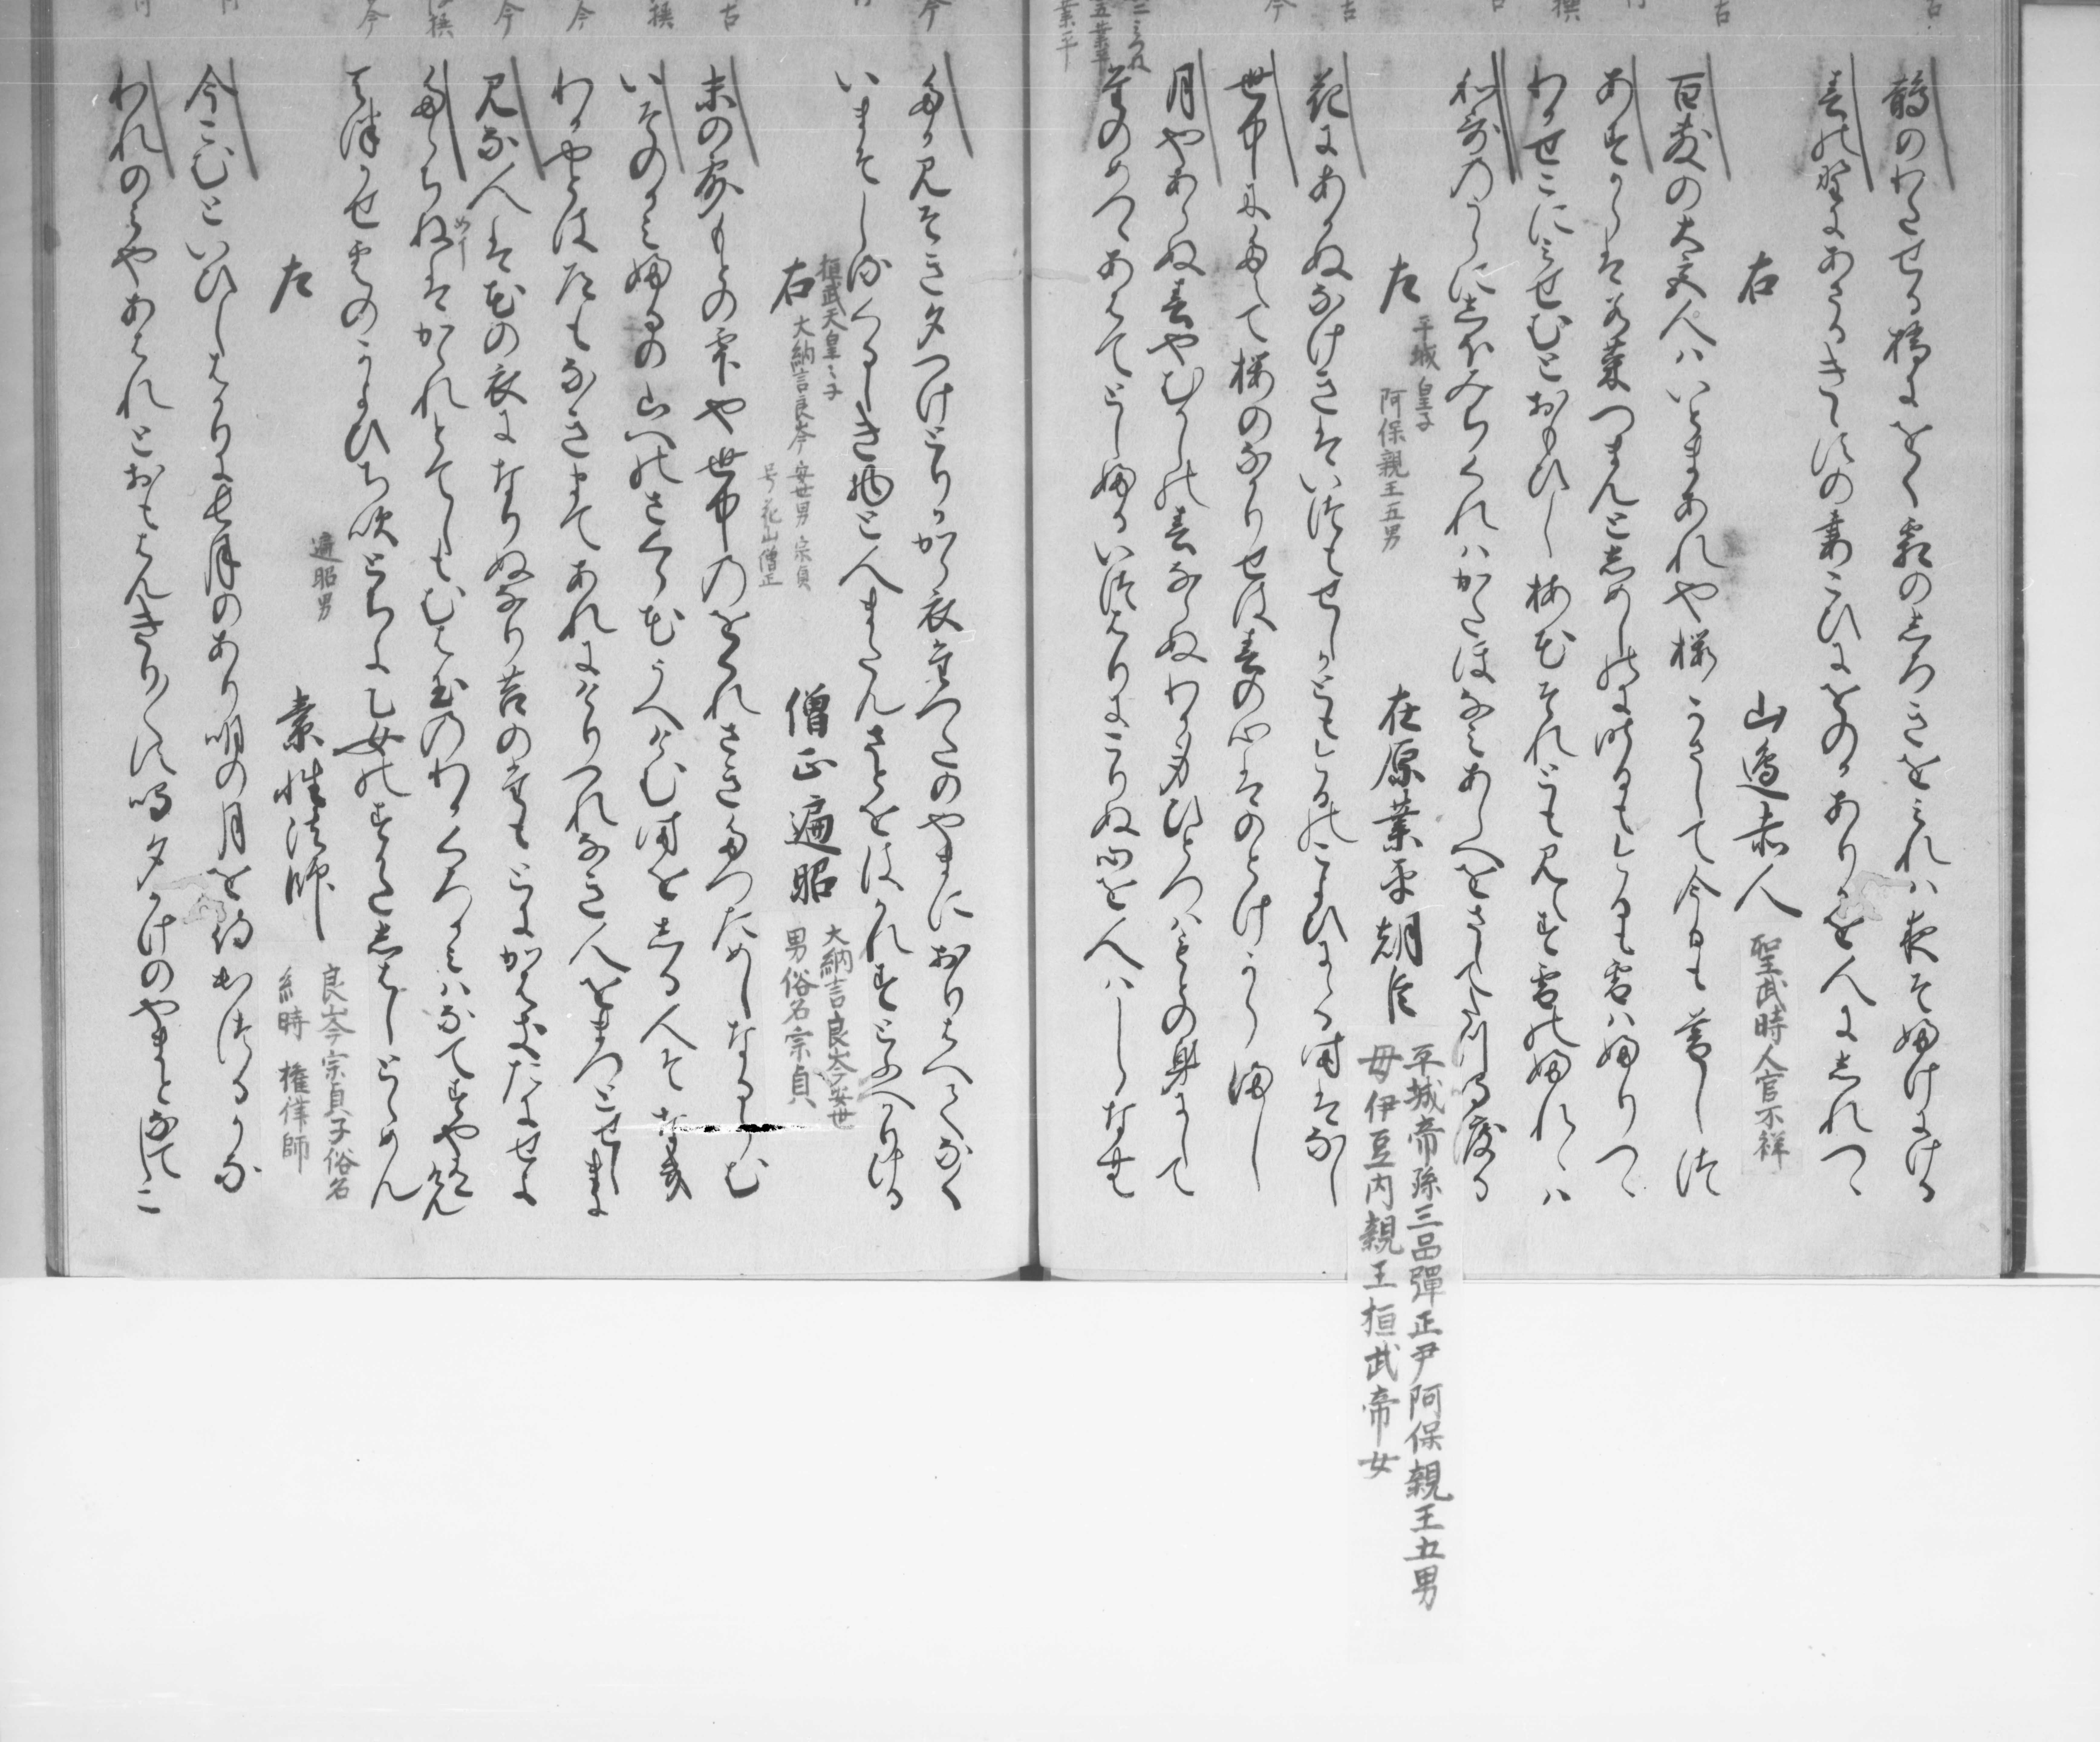 鵲のわたせる橋にをく霜のしろきをみれは夜そ深けにける
春の野にあさるきゝすの妻こひにをのかありかを人にしれつゝ
右
山邊赤人
聖武時人官不詳
百敷の大宮人はいとまあれや桜かさして今日も暮しつ
あすからは若菜つまんとしめし野に昨日もけふも雪はふりつゝ
わかせこにみせむとおもひし梅花それとも見えす雪のふれゝは
和哥のうらにしほみちくれはかたほなみあしへをさして田鶴鳴渡る
左
平城皇子
阿保親王五男
在原業平朝臣
平城帝孫三品彈正尹阿保親王五男
母伊豆内親王桓武帝女
花にあかぬなけきはいつもせしかともけふのこよひにゝる時はなし
世中にたえて桜のなかりせは春の心はのとけからまし
月やあらぬ春やむかしの春ならぬわか身ひとつはもとの身にして
いまそしるくるしき物と人またんさとをはかれすとふへかりける
桓武天皇ゝ子
右
大納言良岑安世男 宗貞
号花山僧正
僧正遍昭
大納言良岑安世
男俗名宗貞
末の露もとの雫や世中のをくれさきたつためしなるらむ
わかやとは道もなきまてあれにけりつれなき人をまつとせしまに
見な人は花の衣になりぬなり苔の衣よかはきたにせよ
たらちねはかゝれとてしもむは玉のわかくろかみはなてすや有けん
天津かせ雲のかよひち吹とちよ乙女のすかたしはしとゝめん
左
遍昭男
素性法師
良岑宗貞子俗名
玄時 権律師
今こむといひしはかりに長月のあり明の月を待出つるかな
われのみやあはれとおもはんきり〱す鳴夕かけのやまとなてしこ